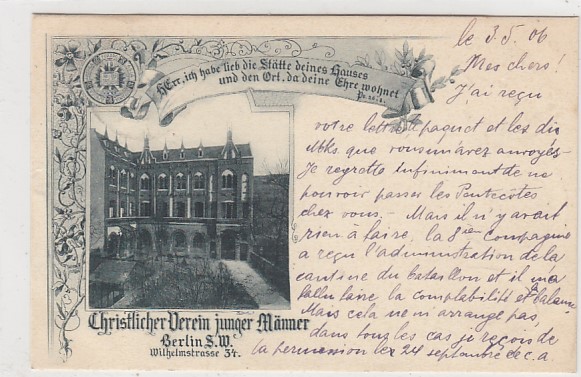 HErr, ich habe lieb die Stätte deines Hauses
und den Ort, da deine Ehre wohnet
Ps. 26. 8.
Christlicher Verein junger Männer
Berlin S.W.
Wilhelmstrasse 34.
le 3. 5. 06
Mes chers!
J'ai reçu
votre lettre, paquet et les dix
Mks que vous m'avez envoyés.
Je regrette infiniment de ne
pouvoir passer les Pentecôtes
chez vous, - Mais il n'y avait
rien à faire, la 8ien Compagnie
a reçu l'administration de la
cantine du bataillon et il m'a
fallu faire la comptabilité et la balance
Mais cela ne m'arrange pas,
dans tous les cas je reçois
la permission le 24 septembre de c. a